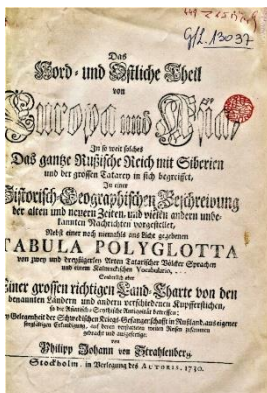 Das
Nord- und Ostliche Theil
von
Europa und Asia,
In so weit solches
Das gantze Rußische Reich mit Siberien
und der grossen Tatarey in sich begreiffet,
In einer
Historisch-Geographischen Beschreibung
der alten und neuern Zeiten, und vielen andern unbe-
kannten Nachrichten vorgestellet,
Nebst einer noch niemahls ans Licht gegebenen
TABULA POLYGLOTTA
von zwey und dreyßigerley Arten Tatarischer Völcker Sprachen
und einem Kalmuckischen Vocabulario,
Sonderlich aber
Einer grossen richtigen Land-Charte von den
benannten Ländern und andern verschiedenen Kupfferstichen,
so die Asiatisch-Scythische Antiquität betreffen;
Bey Gelegenheit der Schwedischen Kriegs-Gefangenschafft in Rußland, aus eigener
sorgfältigen Erkundigung, auf denen verstatteten weiten Reisen zusammen
gebracht und ausgefertiget
von
Philipp Johann von Strahlenberg.
Stockholm, in Verlegung des AUTORIS, 1730.